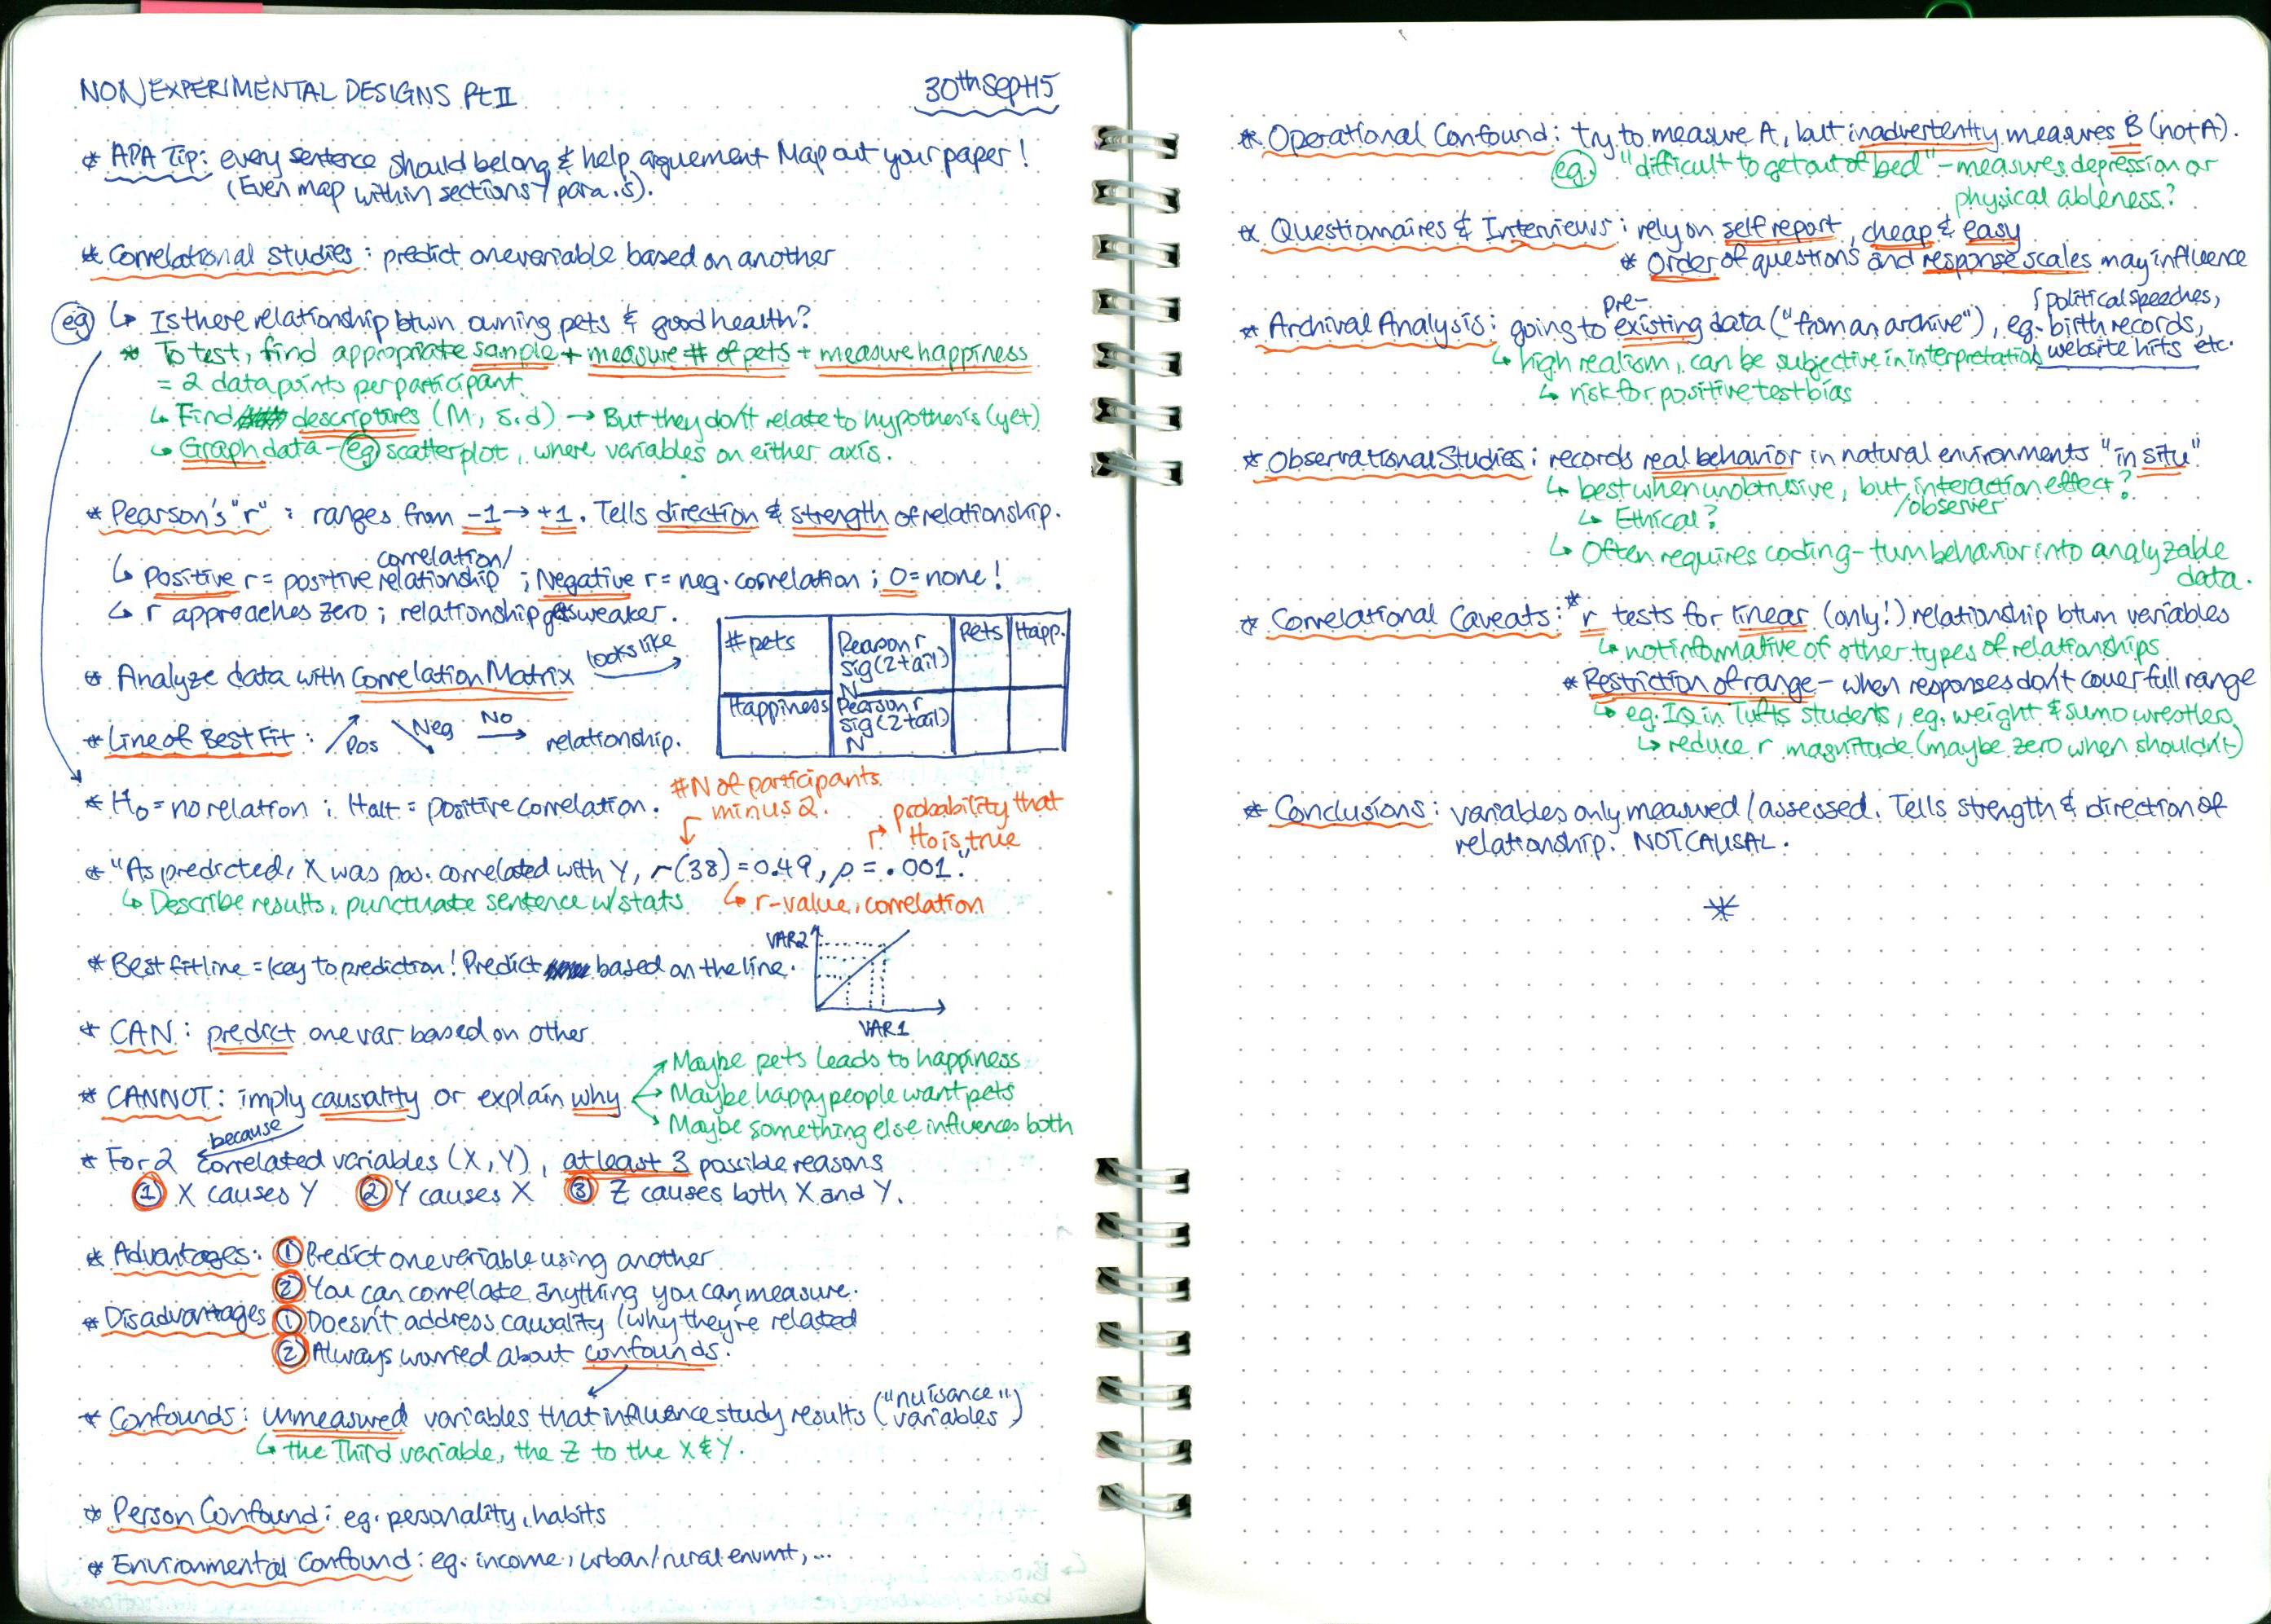 NONEXPERIMENTAL DESIGNS Pt II
30th Sept 15
* APA Tip: every sentence should belong & help arguement Map out your paper!
(Even map within sections / para.s).
* Correlational Studies: predict one variable based on another
eg ↳ Is there relationship btwn owning pets & good health?
* To test, find appropriate sample + measure # of pets + measure happiness
= 2 data points per participant.
↳ Find descriptives (M, s.d) → But they don't relate to hypothesis (yet)
↳ Graph data - eg scatterplot, where variables on either axis.
* Pearson's "r": ranges from -1 → +1. Tells direction & strength of relationship.
correlation/
↳ Positive r = positive relationship; Negative r = neg. correlation; 0 = none!
↳ r approaches zero; relationship gets weaker.
* Analyze data with Correlation Matrix looks like →
Pets Happ.
# pets Pearson r
sig (2 tail)
N
Happiness Pearson r
sig (2 tail)
N
* Line of Best Fit: Pos Neg No → relationship.
* H0 = no relation; Halt = positive correlation.
#N of participants
minus 2.
probability that
Ho is true
* "As predicted, X was pos. correlated with Y, r(38) = 0.49, p = .001."
↳ Describe results, punctuate sentence w/ stats
↳ r-value, correlation
* Best fit line = key to prediction! Predict based on the line.
VAR2
VAR1
* CAN: predict one var based on other
* CANNOT: imply causality or explain why
Maybe pets leads to happiness
Maybe happy people want pets
Maybe something else influences both
because
* For 2 correlated variables (X, Y), at least 3 possible reasons
① X causes Y ② Y causes X ③ Z causes both X and Y.
* Advantages: ① Predict one variable using another
② You can correlate anything you can measure.
* Disadvantages ① Doesn't address causality / why they're related
② Always worried about confounds.
* Confounds: unmeasured variables that influence study results ("nuisance" variables)
↳ the Third variable, the Z to the X & Y.
* Person Confound: eg. personality, habits
* Environmental Confound: eg. income, urban/rural envmt, ...
* Operational Confound: try to measure A, but inadvertently measures B (not A).
eg. "difficult to get out of bed" - measures depression or
physical ableness?
* Questionnaires & Interviews: rely on self report, cheap & easy
* Order of questions and response scales may influence
* Archival Analysis: going to pre-existing data ("from an archive"), eg. birth records,
political speeches,
website hits etc.
↳ high realism, can be subjective in interpretation
↳ risk for positive test bias
* Observational Studies: records real behavior in natural environments "in situ"
↳ best when unobtrusive, but interaction effect?
/observer
↳ Ethical?
↳ Often requires coding - turn behavior into analyzable
data.
* Correlational Caveats: * r tests for linear (only!) relationship btwn variables
↳ not informative of other types of relationships
* Restriction of range - when responses don't cover full range
↳ eg. IQ in Tufts students, eg. weight & sumo wrestlers
↳ reduce r magnitude (maybe zero when shouldn't)
* Conclusions: variables only measured/assessed. Tells strength & direction of
relationship. NOT CAUSAL.
*